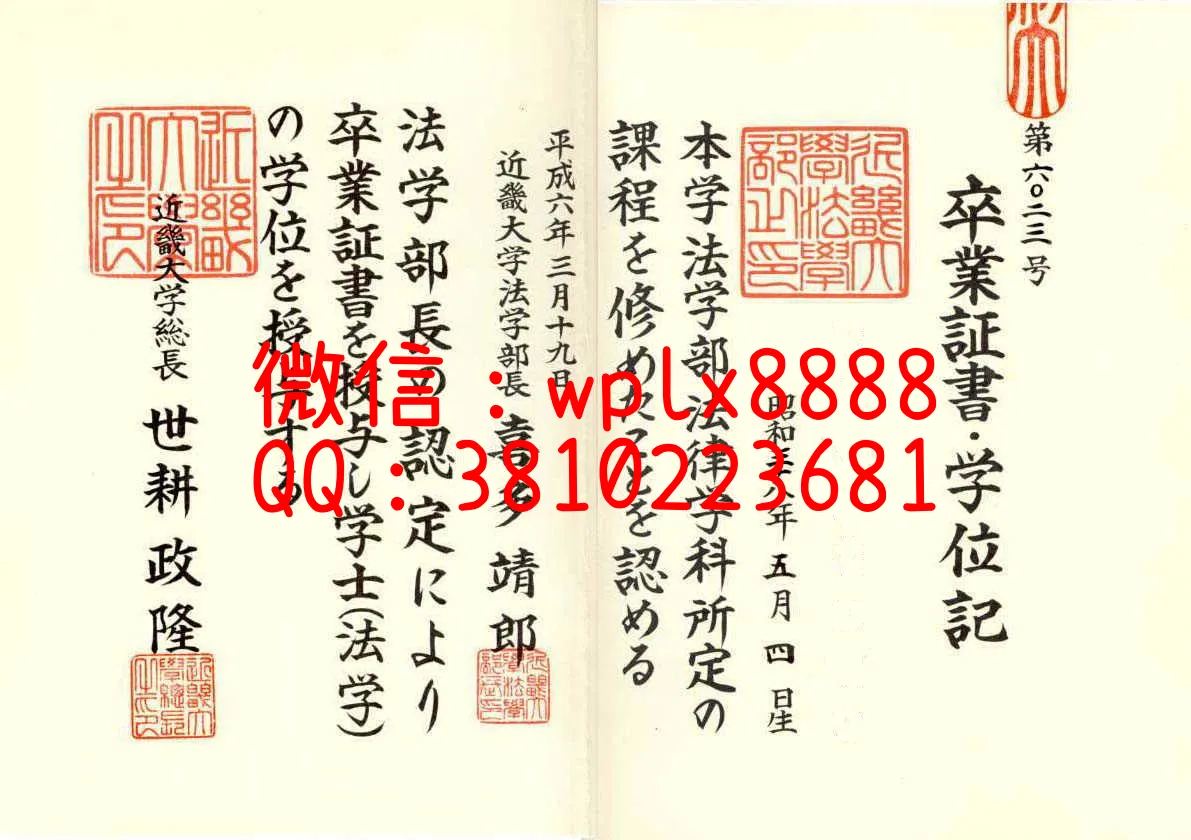 第六〇二三号
卒業証書・学位記
昭和三八年五月四日生
本学法学部法律学科所定の
課程を修めたことを認める
平成六年三月十九日
近畿大学法学部長 喜多靖郎
法学部長の認定により
卒業証書を授与し学士(法学)
の学位を授与する
近畿大学総長 世耕政隆
近畿大学法学部之印
近畿大学之印
微信：wplx8888
QQ：3810223681